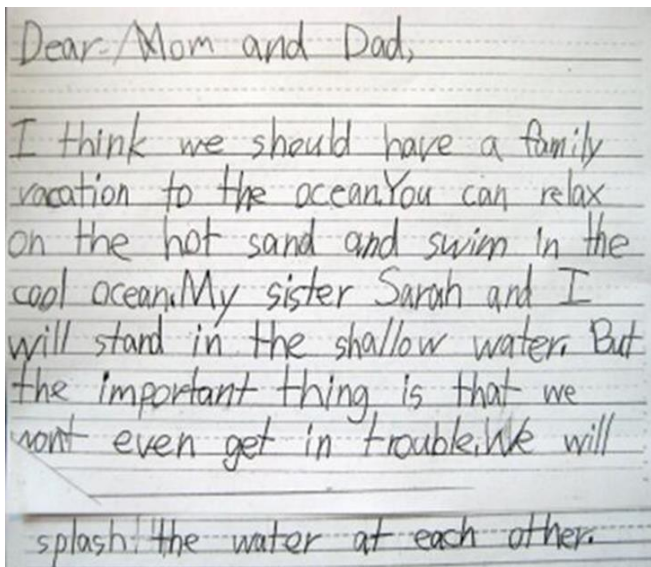 Dear Mom and Dad,
I think we should have a family
vacation to the ocean.You can relax
on the hot sand and swim in the
cool ocean.My sister Sarah and I
will stand in the shallow water. But
the important thing is that we
wont even get in trouble.We will
splash the water at each other.